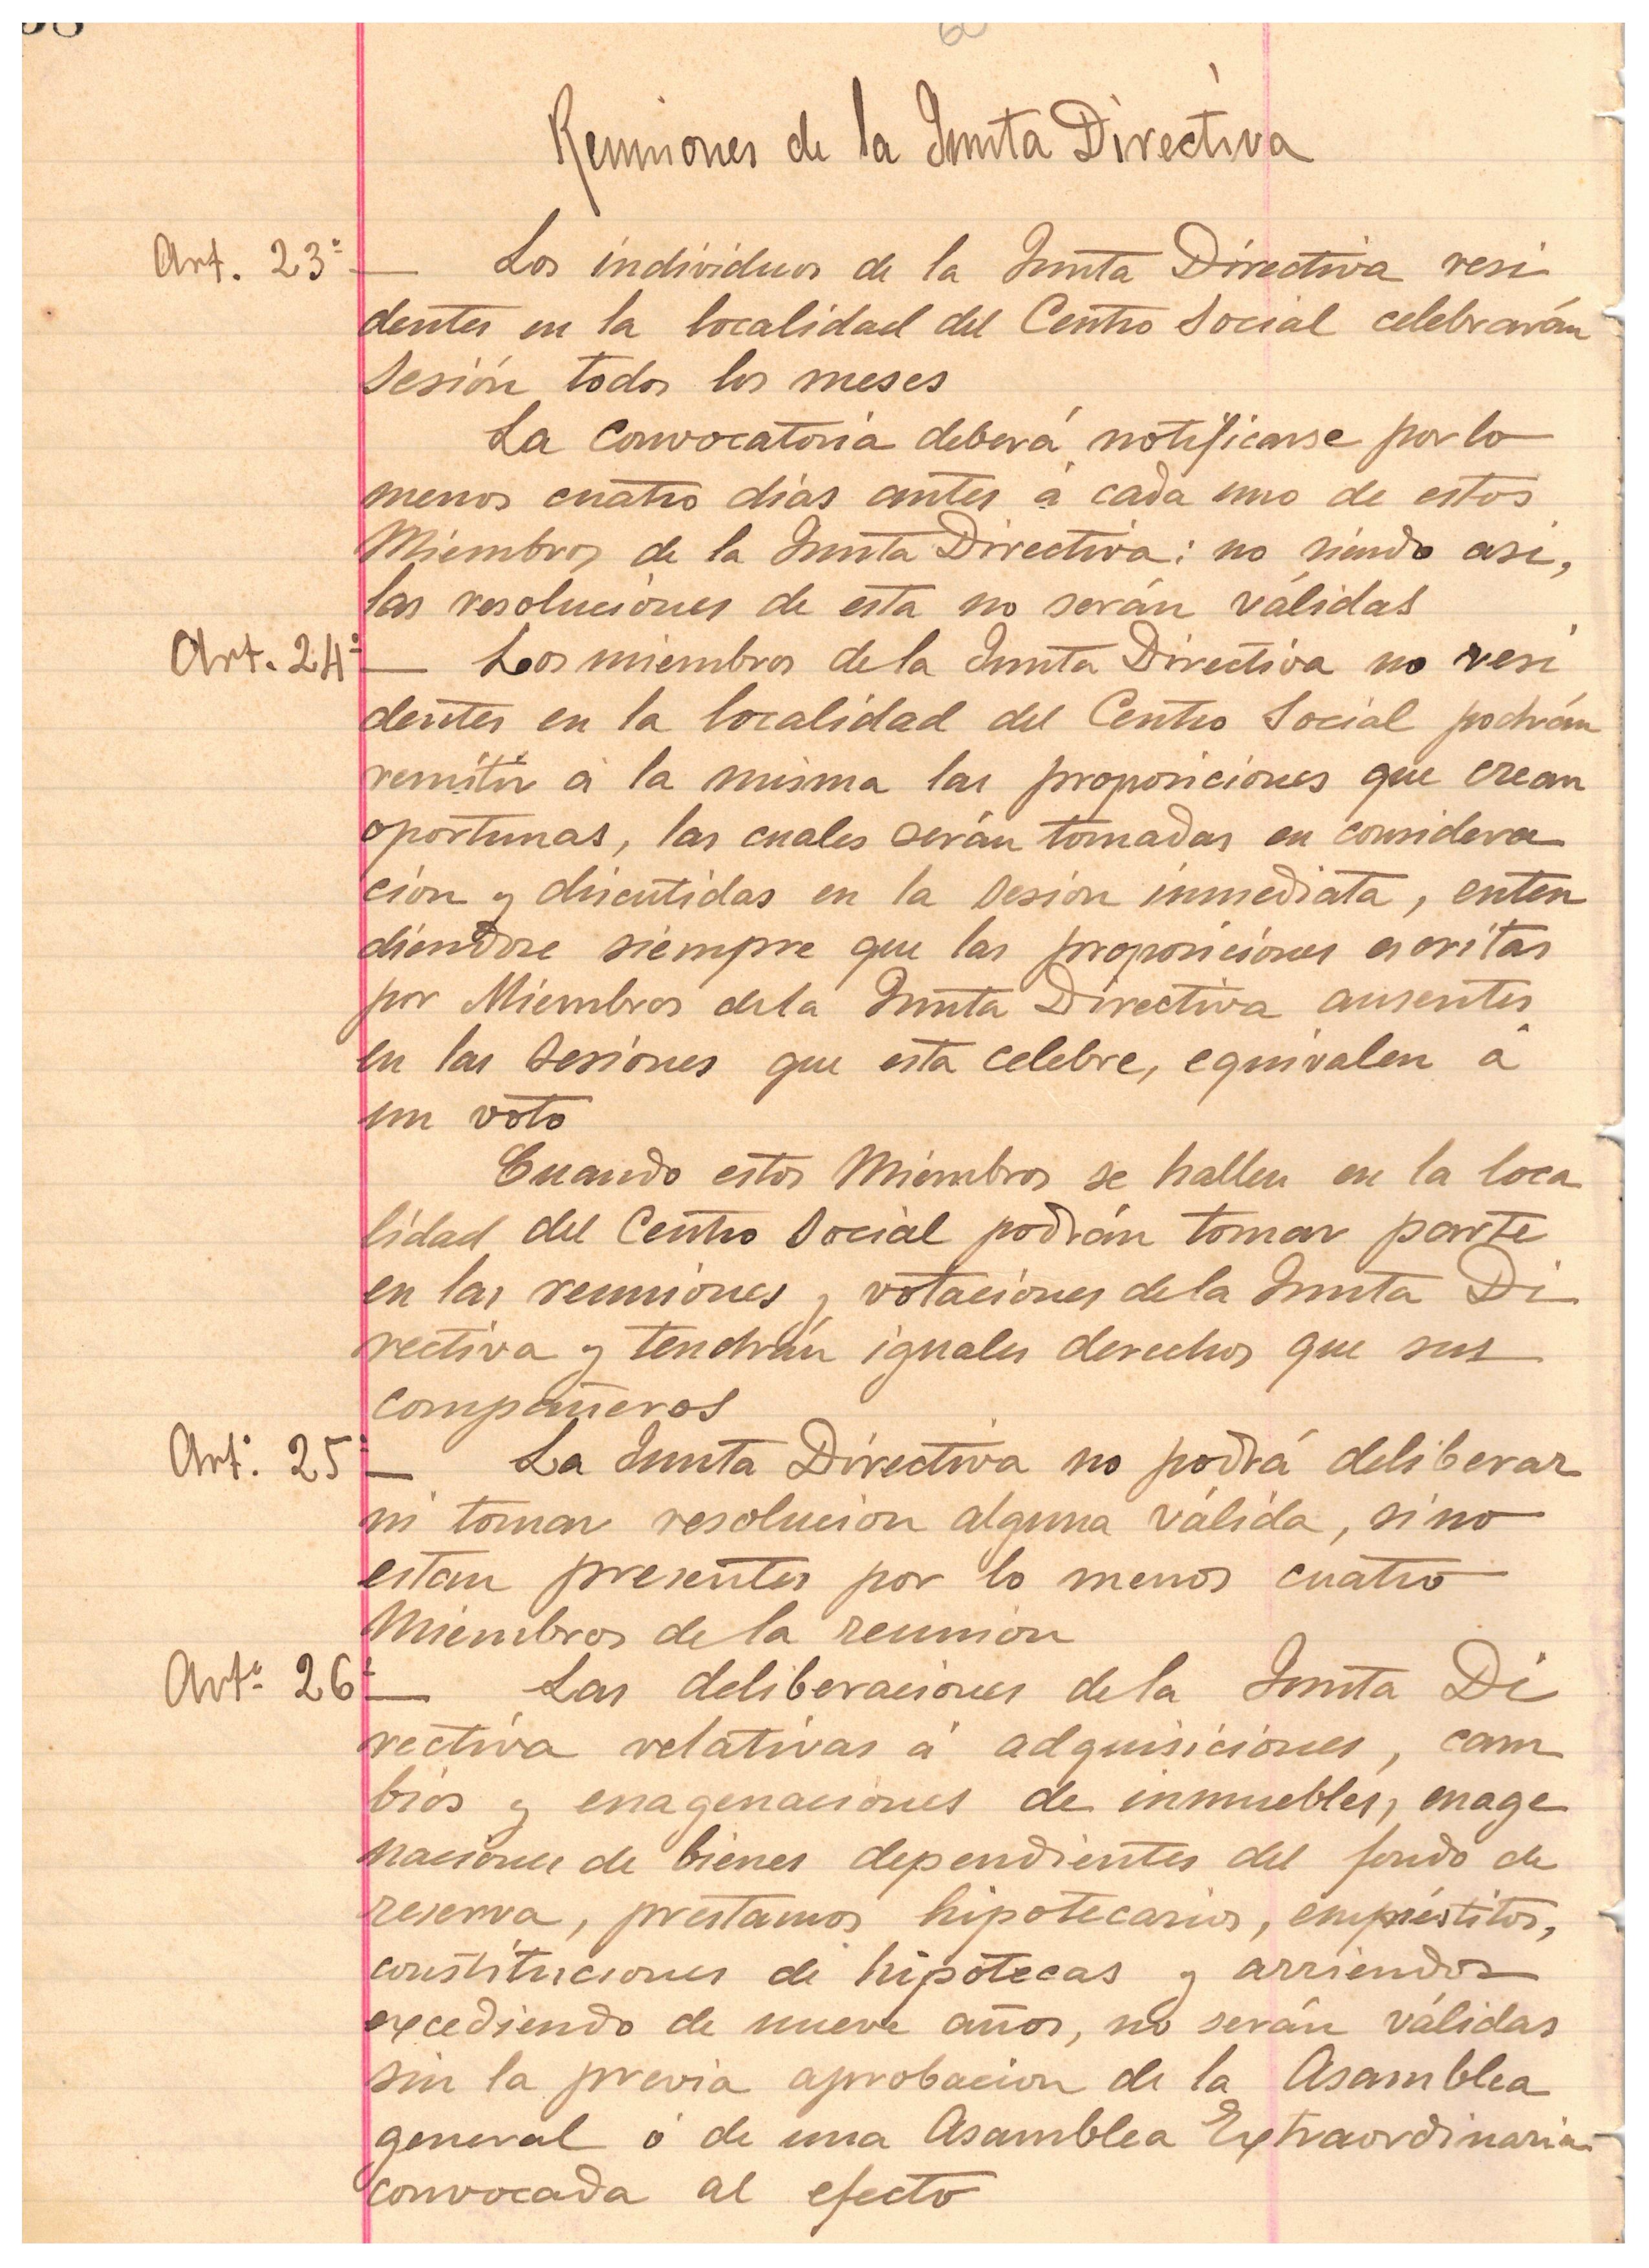 Reuniones de la Junta Directiva
Art. 23º — Los individuos de la Junta Directiva resi
dentes en la localidad del Centro Social celebrarán
sesión todos los meses
La convocatoria deberá notificarse por lo
menos cuatro dias antes á cada uno de estos
Miembros de la Junta Directiva: no siendo asi,
las resoluciones de esta no serán válidas
Art. 24º — Los miembros de la Junta Directiva no resi
dentes en la localidad del Centro Social podrán
remitir á la misma las proposiciones que crean
oportunas, las cuales serán tomadas en considera
ción y discutidas en la sesión inmediata, enten
diendose siempre que las proposiciones escritas
por Miembros de la Junta Directiva ausentes
en las sesiones que esta celebre, equivalen á
un voto
Cuando estos Miembros se hallen en la loca
lidad del Centro Social podrán tomar parte
en las reuniones y votaciones de la Junta Di
rectiva y tendrán iguales derechos que sus
compañeros
Artº. 25º — La Junta Directiva no podrá deliberar
ni tomar resolucion alguna válida, si no
estan presentes por lo menos cuatro
Miembros de la reunion
Artº 26º — Las deliberaciones de la Junta Di
rectiva relativas á adquisiciones, cam
bios y enagenaciones de inmuebles, enage
naciones de bienes dependientes del fondo de
reserva, prestamos hipotecarios, empréstitos,
constituciones de hipotecas y arriendos
excediendo de nueve años, no serán válidas
sin la previa aprobacion de la Asamblea
general ó de una Asamblea Extraordinaria
convocada al efecto